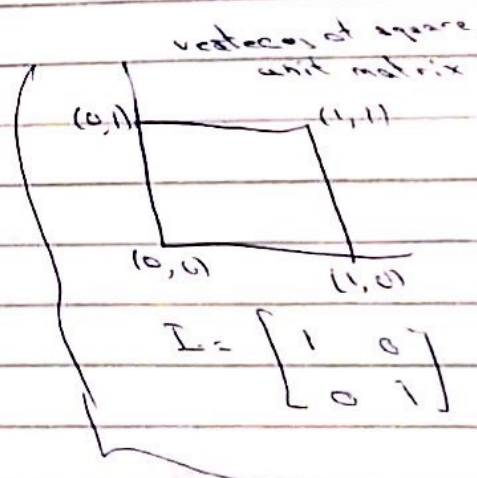 verteces of square
unit matrix
(0,1) (1,1)
(0,0) (1,0)
I = [ 1 0
0 1 ]